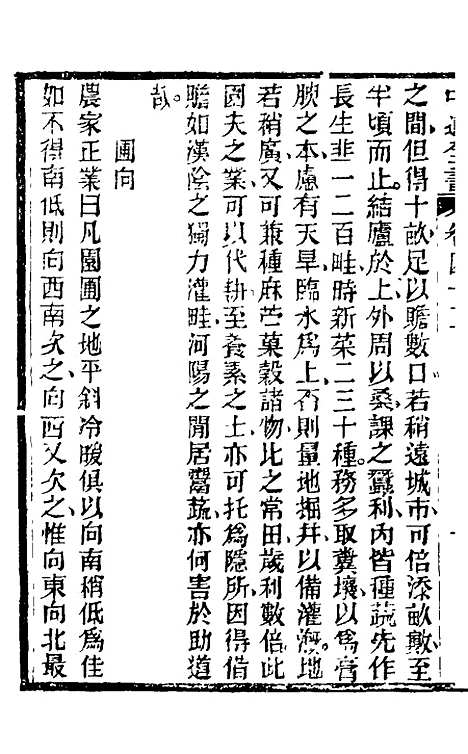 之間但得十畝足以贍數口若稍遠城市可倍添畝數至
半頃而止結廬於上外周以桑課之蠶利內皆種蔬先作
長生韭一二百畦時新菜二三十種務多取糞壤以爲膏
腴之本慮有天旱臨水爲上否則量地掘井以備灌漑地
若稍廣又可兼種麻苎菓穀諸物比之常田歲利數倍此
園夫之業可以代耕至養素之士亦可托爲隱所因得借
贍如漢陰之獨力灌畦河陽之閒居鬻蔬亦何害於助道
哉
圃向
農家正業曰凡園圃之地平斜冷暖俱以向南稍低爲佳
如不得南低則向西南次之向西又次之惟向東向北最